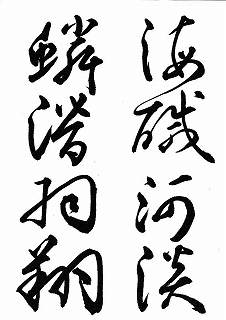 海鹹河淡
鱗潛羽翔